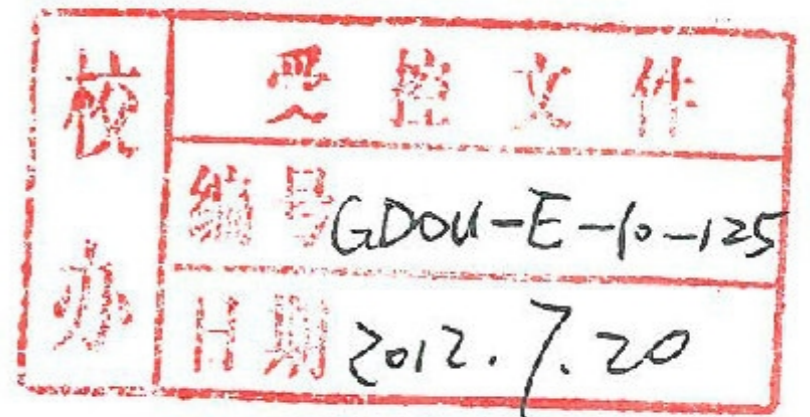 校办
受控文件
编号 GDOU-E-10-125
日期 2012.7.20